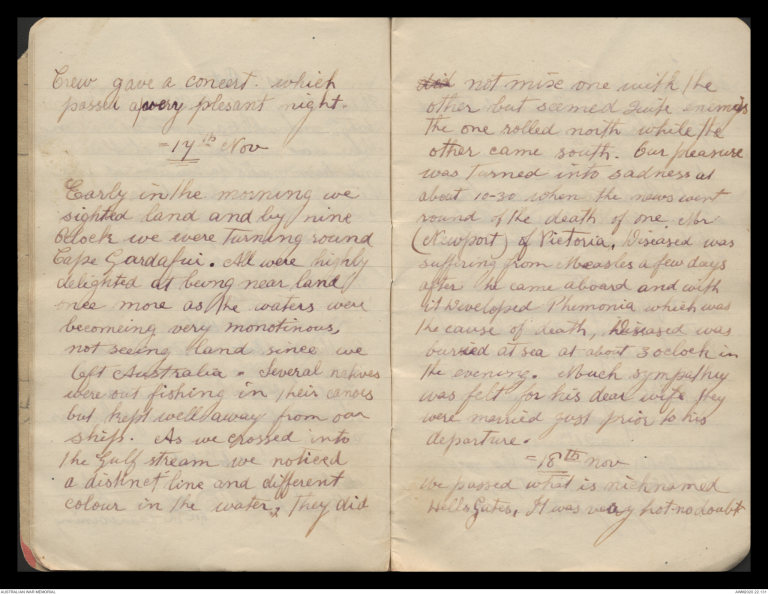 Crew gave a concert. which
passed a very plesant night.
=17th Nov
Early in the morning we
sighted land and by nine
Oclock we were turning round
Cape Gardafui. All were highly
delighted at being near land
once more as the waters were
becomeing very monotinous,
not seeing land since we
left Australia. Several natives
were out fishing in their canoes
but kept well away from our
ship. As we crossed into
the Gulf stream we noticed
a distinct line and different
colour in the water, They did
did not mix one with the
other but seemed Quite enemys
the one rolled north while the
other came south. Our pleasure
was turned into sadness at
about 10-30 when the news went
round of the death of one Mr
(Newport) of Victoria, Diseased was
suffiring from Measles a few days
after he came aboard and with
it Developed Phimonia which was
the cause of death, Diseased was
burried at sea at about 3 oclock in
the evening. Much sympathy
was felt for his dear wife they
were married just prior to his
departure.
=18th Nov
We passed what is nicknamed
Hells Gates, It was very hot-no doubt
AUSTRALIAN WAR MEMORIAL